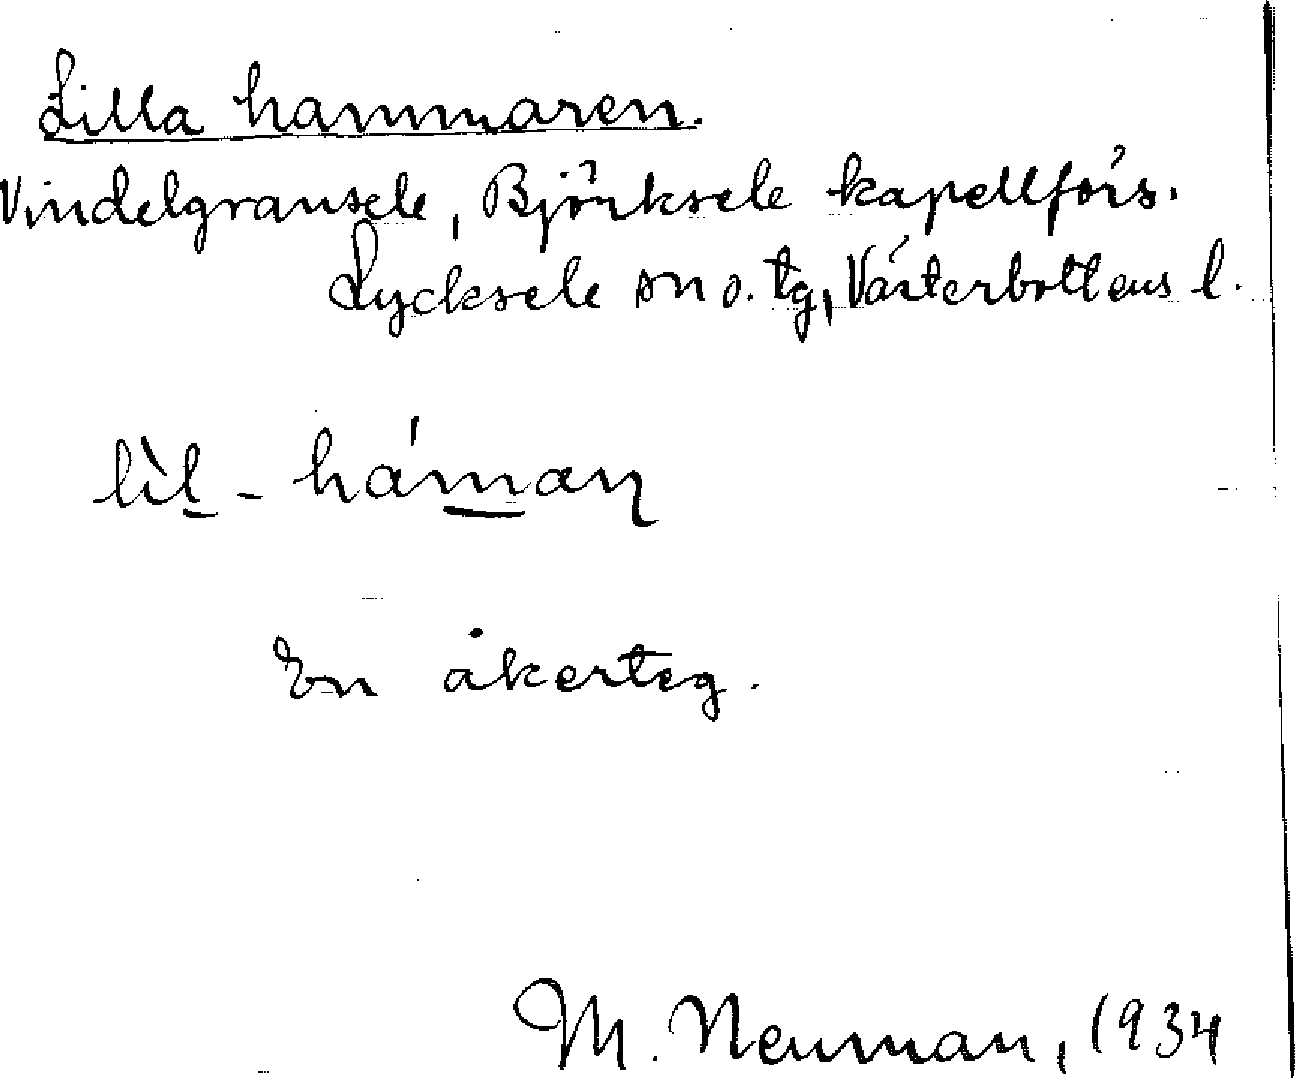 Lilla hammaren.
Vindelgransele, Björksele kapellförs.
Lycksele sn o. tg, Västerbottens l.
lìl̲ - há̍m̲aꞃ
En åkerteg.
M. Neuman, 1934